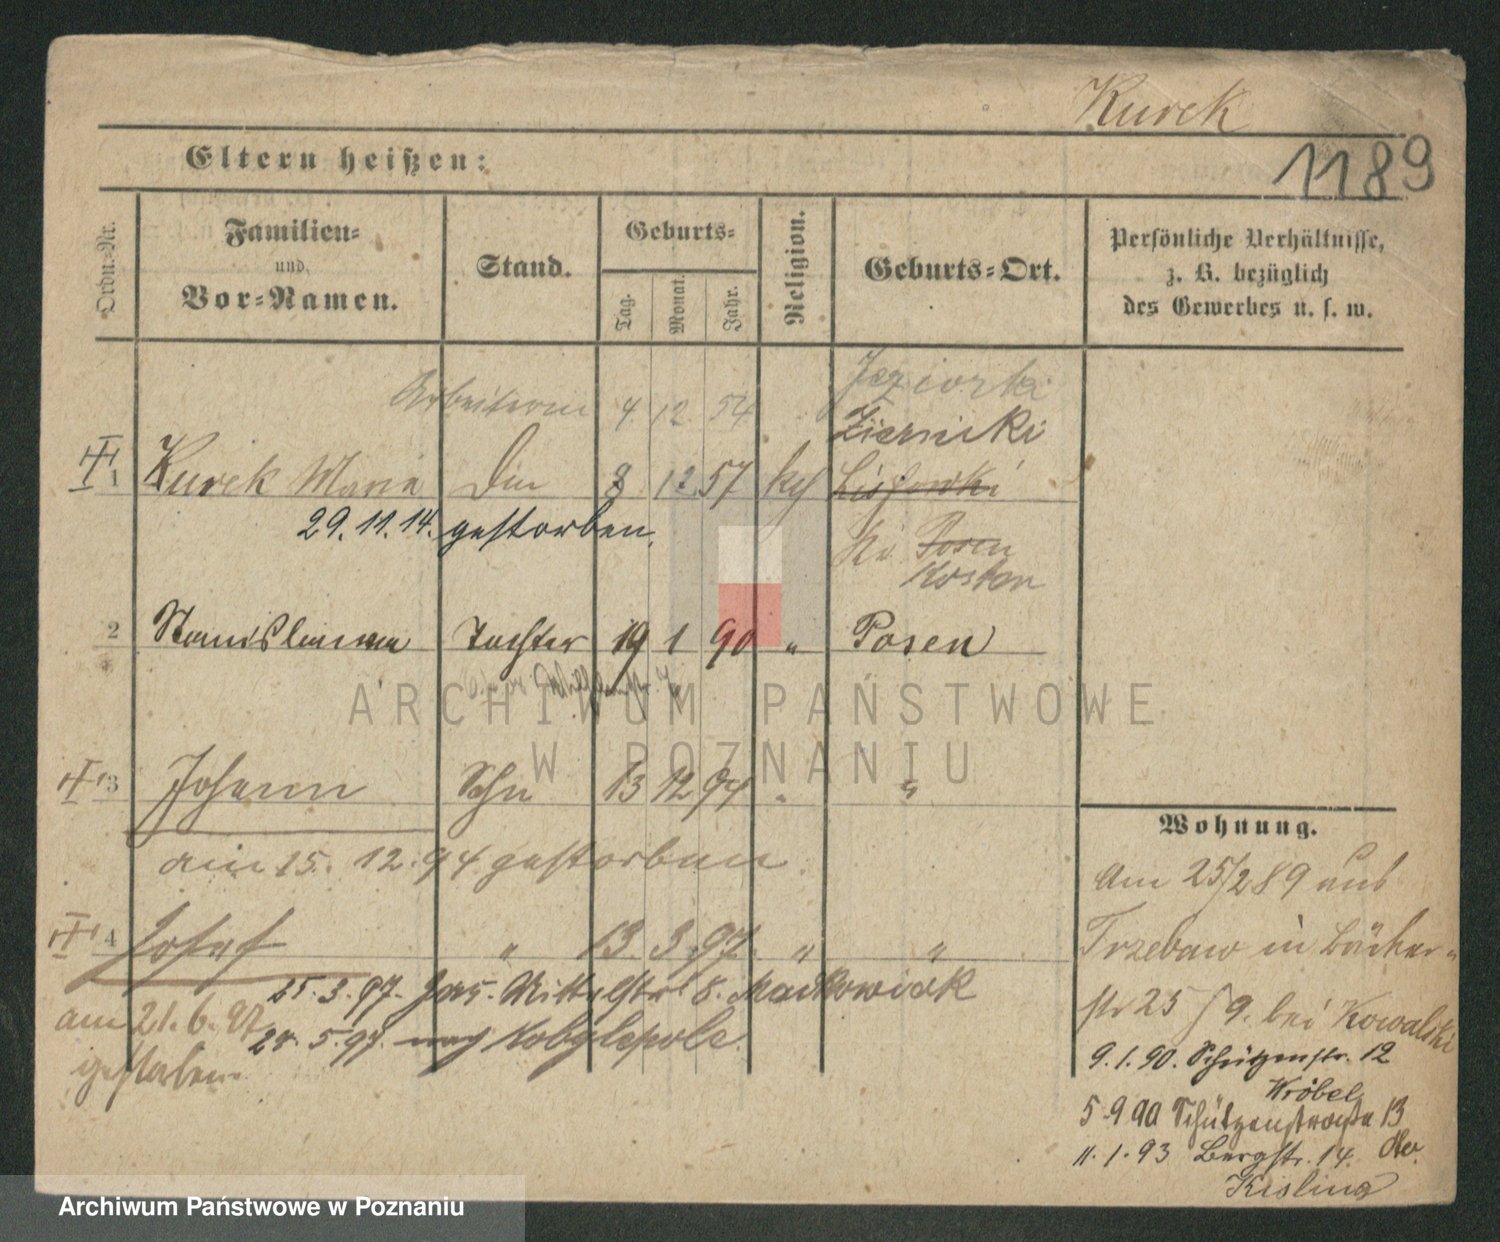 Kurek
1189
Eltern heißen:
Ordn.-Nr.
Familien-
und
Vor-Namen.
Stand.
Geburts-
Tag.
Monat.
Jahr.
Religion.
Geburts-Ort.
Persönliche Verhältnisse,
z. B. bezüglich
des Gewerbes u. s. w.
Arbeiterin 4. 12. 54 Jeziorki
Ziernicki
1 Kurek Maria 8 12 57
29.11.14. gestorben.
Kr. Posen
Kosten
2 Stanislawa Tochter 19 1 90 " Posen
3 Johann Sohn 13 12 94 " "
am 15. 12. 94 gestorben.
4 Josef " 13. 3. 97. " "
25. 3. 97. Mittelstr 8. Maćkowiak
am 21. 6. 97
5. 97. nach Kobylepole.
gestorben.
Wohnung.
Am 25/2 89 aus
Trzebaw in Bäcker-
str 25 / 9. bei Kowalski
9. 1. 90. Schützenstr. 12
Wröbel
5 9 90 Schützenstraße 13
11. 1. 93 Bergstr. 14.
ARCHIWUM PAŃSTWOWE
W POZNANIU
Archiwum Państwowe w Poznaniu